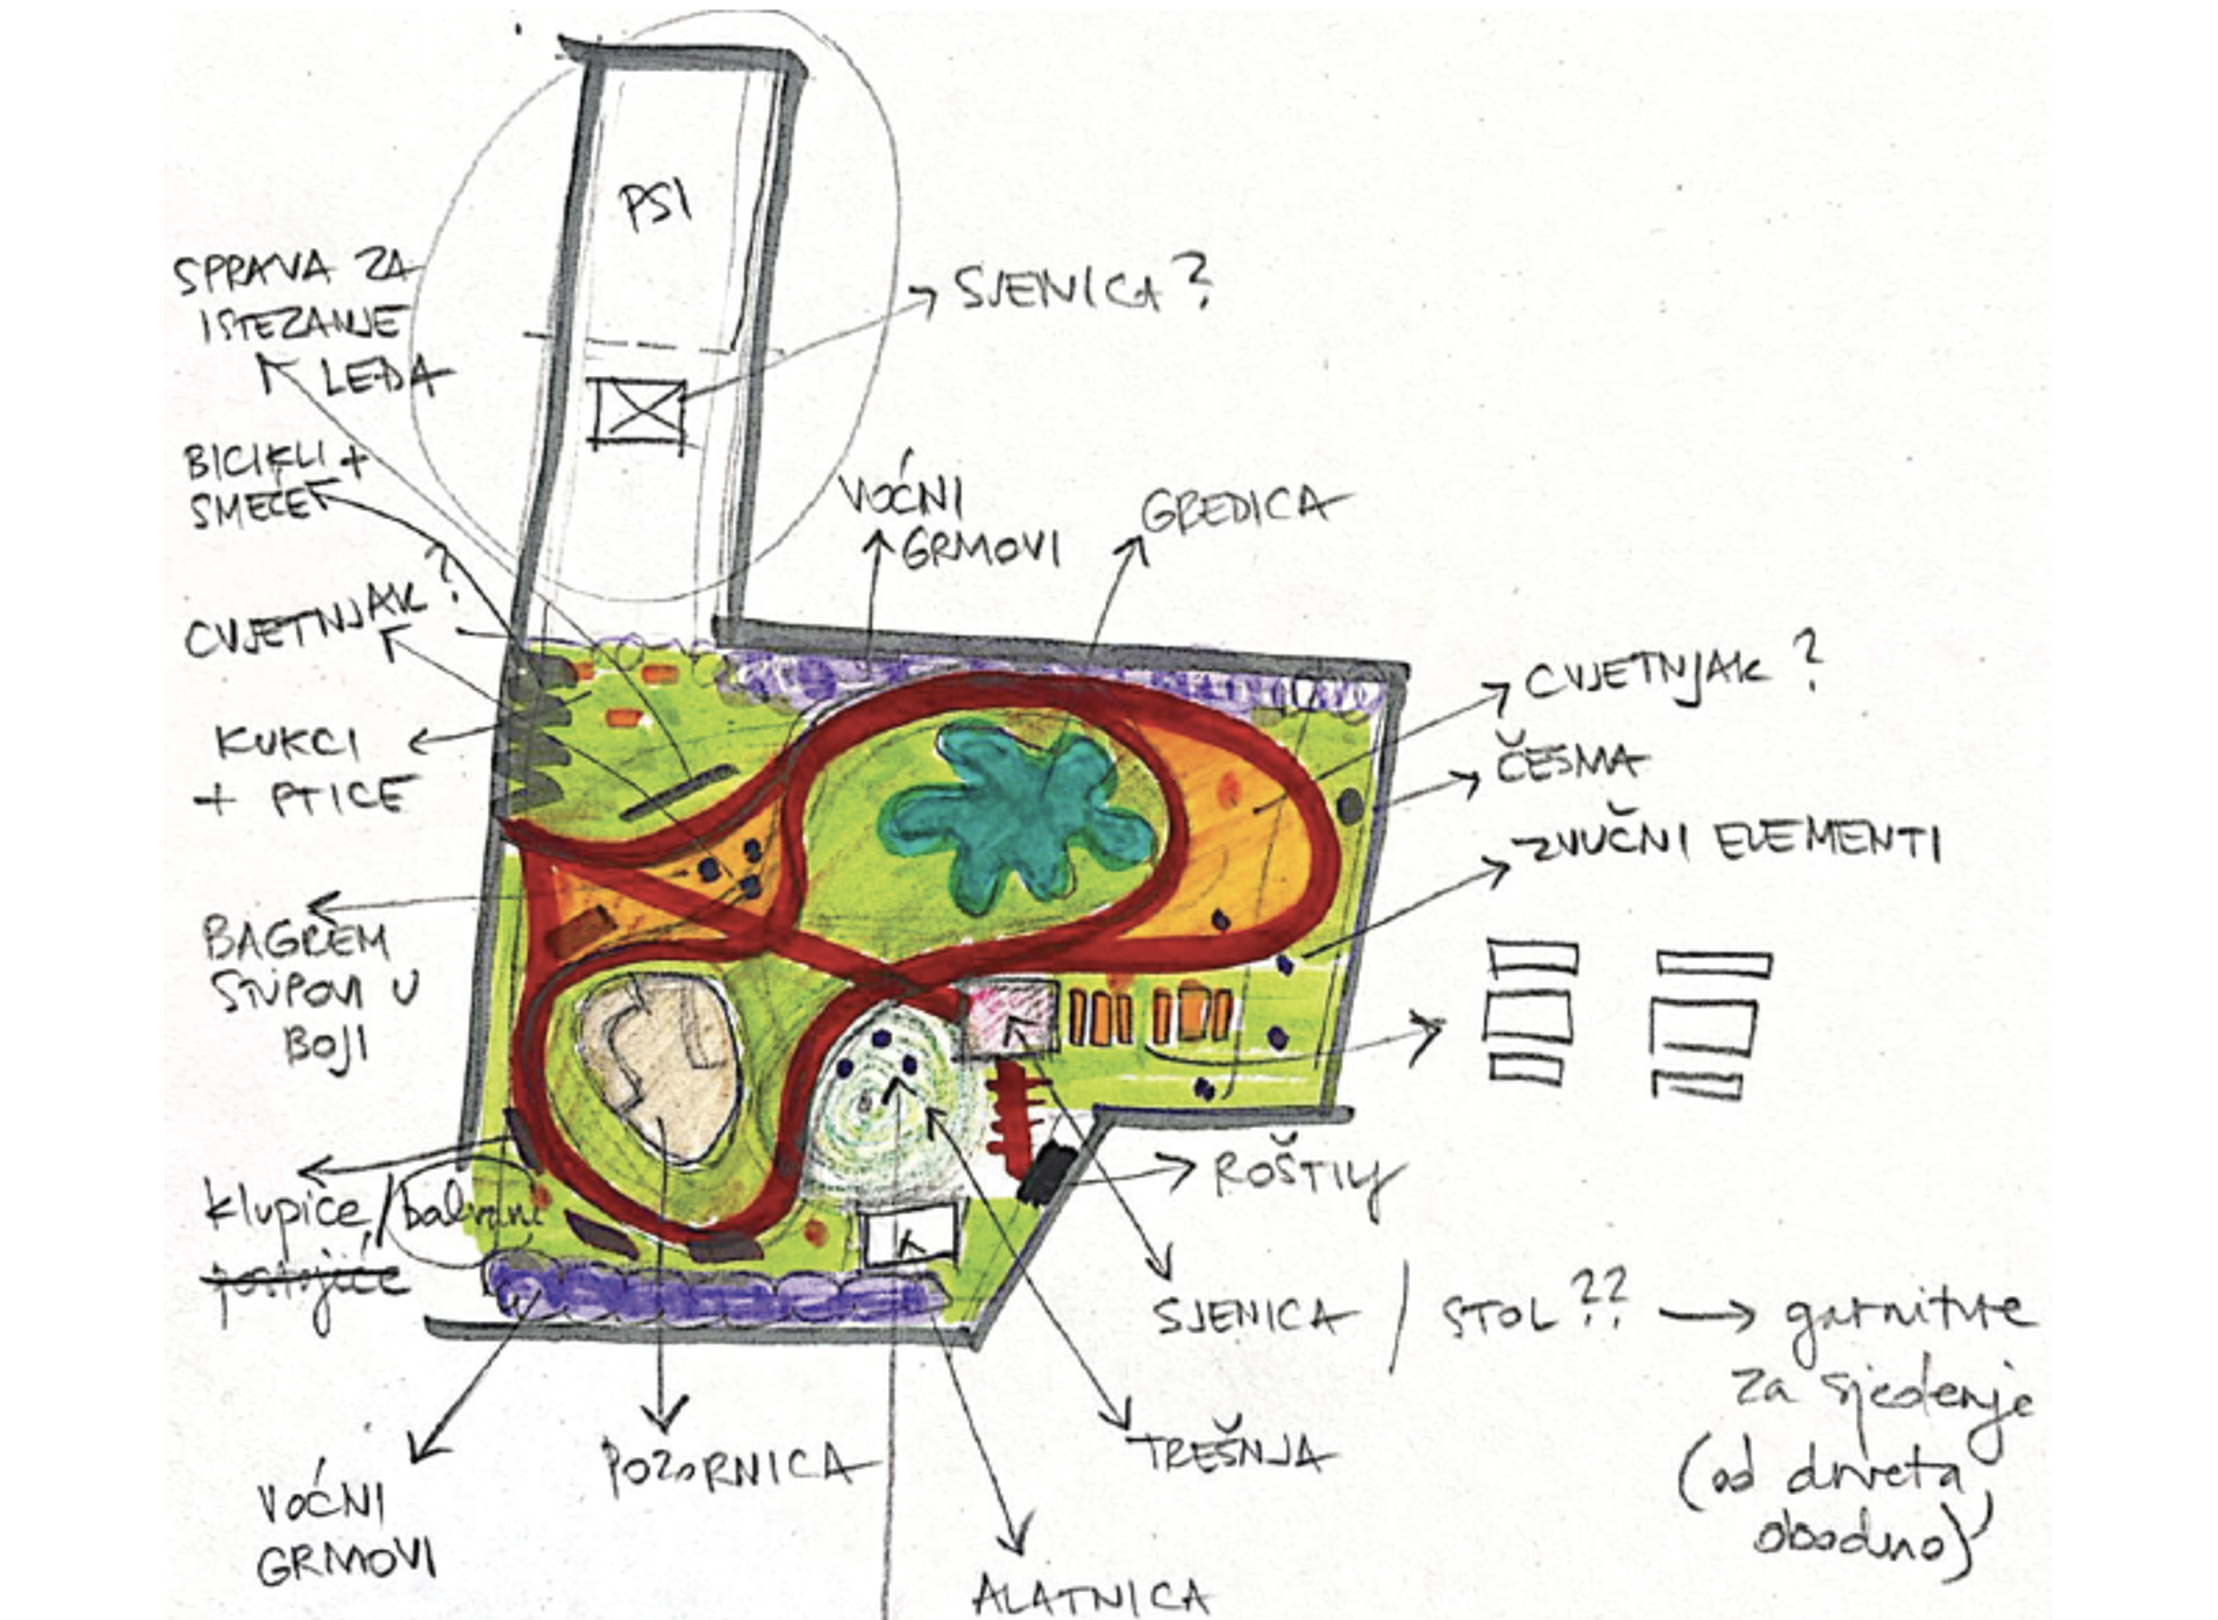 PSI
SPRAVA ZA
ISTEZANJE
LEĐA
SJENICA?
BICIKLI +
SMEĆE
VOĆNI
GRMOVI
GREDICA
CVJETNJAK?
KUKCI
+ PTICE
CVJETNJAK?
ČESMA
ZVUČNI ELEMENTI
BAGREM
STUPOVI U
BOJI
klupice/balvani
postojiće
ROŠTILJ
SJENICA / STOL?? → garniture
za sjedenje
(od drveta
obodno)
TREŠNJA
POZORNICA
VOĆNI
GRMOVI
ALATNICA